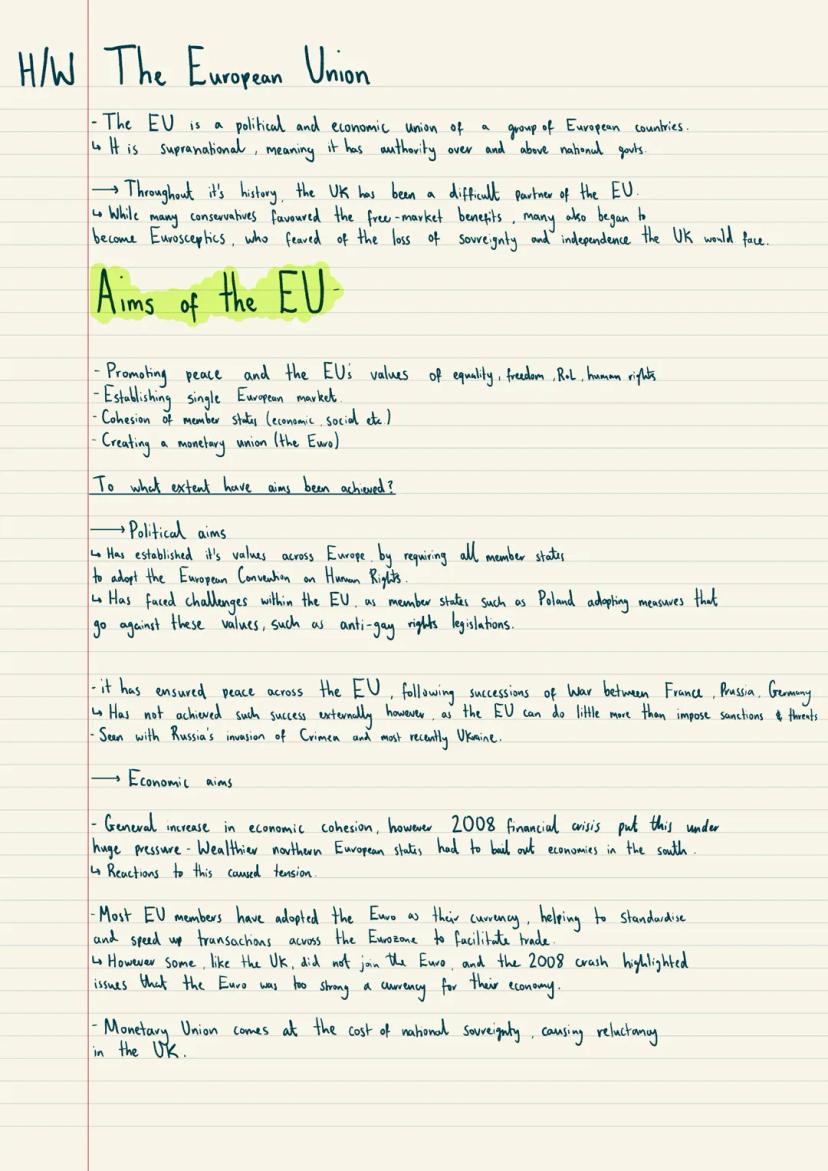 H/W The European Union
- The EU is a political and economic union of a group of European countries.
↳ It is supranational, meaning it has authority over and above national govts.
→ Throughout it's history, the UK has been a difficult partner of the EU.
↳ While many conservatives favoured the free-market benefits, many also began to
become Eurosceptics, who feared of the loss of sovreignty and independence the UK would face.
Aims of the EU-
- Promoting peace and the EU's values of equality, freedom, RoL, human rights
- Establishing single European market.
- Cohesion of member states (economic, social etc.)
- Creating a monetary union (the Euro)
To what extent have aims been achieved?
→ Political aims
↳ Has established it's values across Europe, by requiring all member states
to adopt the European Convention on Human Rights.
↳ Has faced challenges within the EU, as member states such as Poland adopting measures that
go against these values, such as anti-gay rights legislations.
- it has ensured peace across the EU, following successions of War between France, Prussia, Germany
↳ Has not achieved such success externally however, as the EU can do little more than impose sanctions & threats
- Seen with Russia's invasion of Crimea and most recently Ukraine.
→ Economic aims
- General increase in economic cohesion, however 2008 financial crisis put this under
huge pressure - Wealthier northern European states had to bail out economies in the south.
↳ Reactions to this caused tension.
- Most EU members have adopted the Euro as their currency, helping to standardise
and speed up transactions across the Eurozone to facilitate trade.
↳ However some, like the UK, did not join the Euro, and the 2008 crash highlighted
issues that the Euro was too strong a currency for their economy.
- Monetary Union comes at the cost of national sovreignty, causing reluctancy
in the UK.